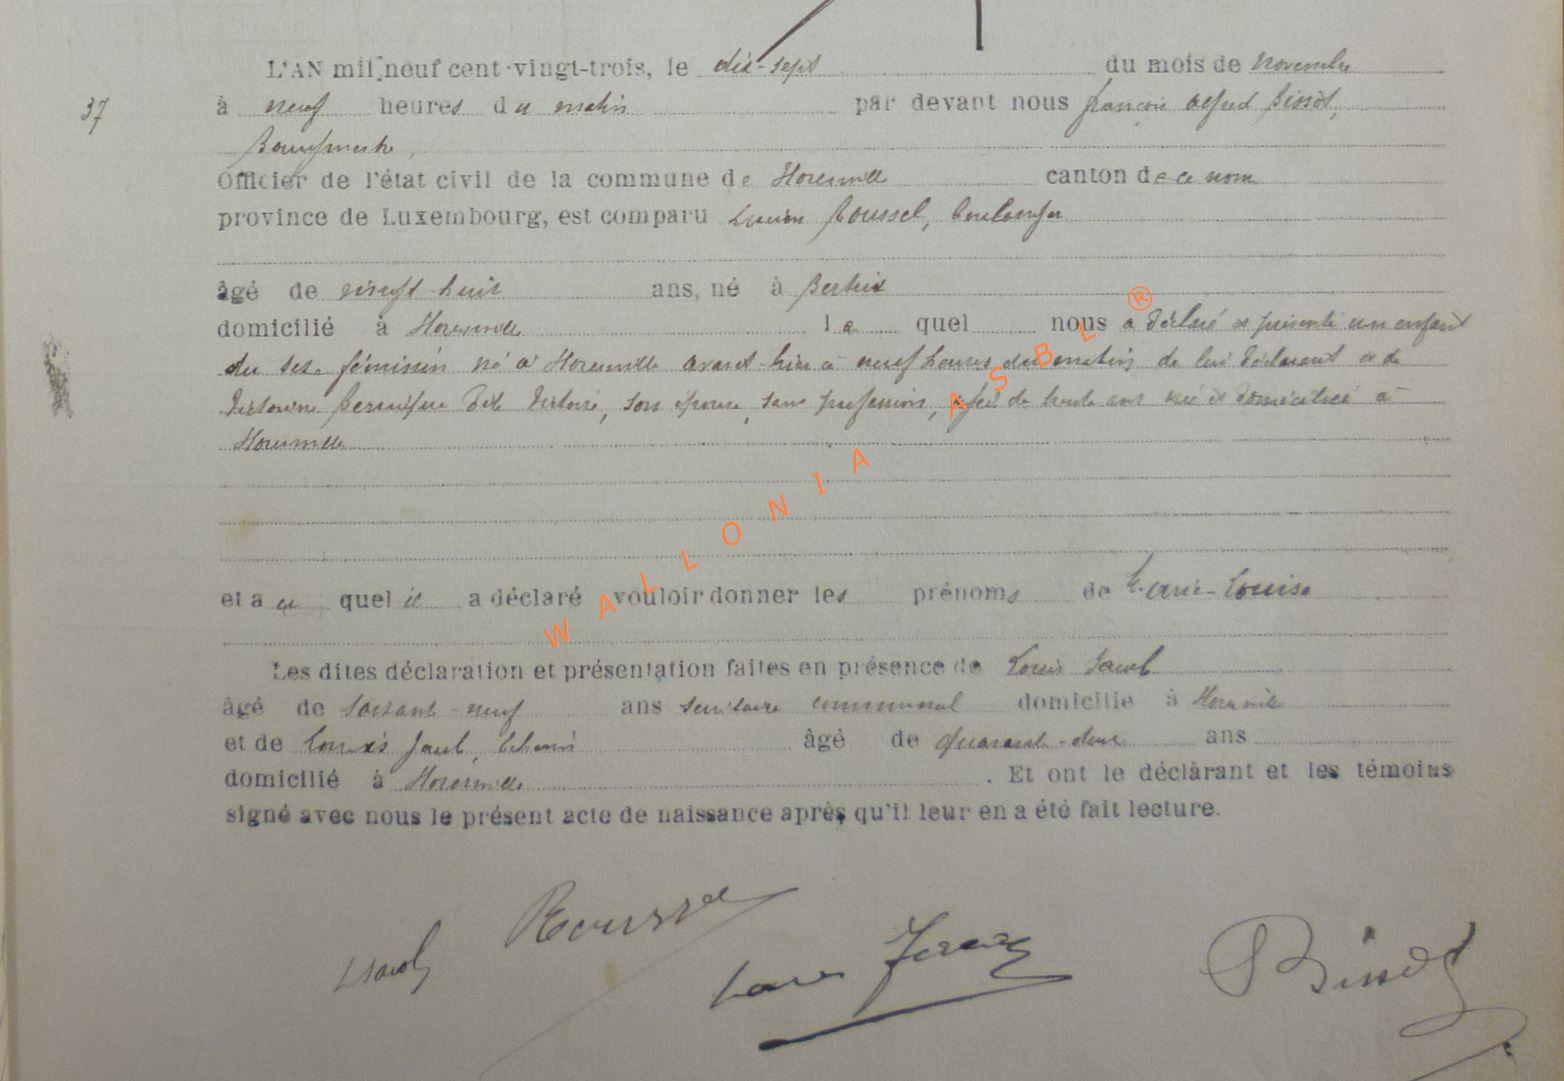 L'AN mil neuf cent vingt-trois, le dix-sept du mois de novembre
37
à neuf heures du matin par devant nous françois alfred Bissot,
Bourgmestre,
Officier de l'état civil de la commune de canton de ce nom
province de Luxembourg, est comparu Lucien Roussel, boulanger
âgé de vingt-huit ans, né à Bertrix
domicilié à le quel nous a déclaré et présenté un enfant
du sexe féminin né à avant-hier à neuf heures du matin, de lui déclarant et de
son épouse, sans profession, âgée de trente ans née et domiciliée à
et a ce quel il a déclaré vouloir donner les prénoms de Marie-Louise
Les dites déclaration et présentation faites en présence de Louis Jacob
âgé de soixante-neuf ans secrétaire communal domicilié à
et de âgé de quarante-deux ans
domicilié à . Et ont le déclarant et les témoins
signé avec nous le présent acte de naissance après qu'il leur en a été fait lecture.
WALLONIA ASBL ®
LJacob Roussel Bissot